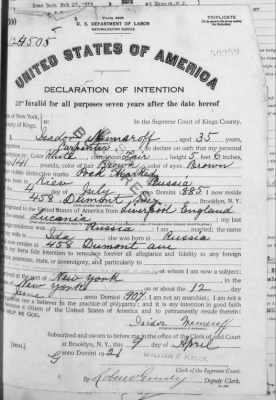 Rose born Feb 25, 1913 at Newark, N.J.
Form 2202
U. S. DEPARTMENT OF LABOR
NATURALIZATION SERVICE
TRIPLICATE
124505
UNITED STATES OF AMERICA
DECLARATION OF INTENTION
Invalid for all purposes seven years after the date hereof
of New York,
ty of Kings,
In the Supreme Court of Kings County.
aged 35 years,
Carpenter, do declare on oath that my personal
ription is: Color White, complexion Fair, height 5 feet 6 inches,
141, color of hair Brown, color of eyes Brown
Pock Marked
Kiev Russia
4 day of July, Anno Domini 1885; I now reside
458 Dumont Ave, Brooklyn, N. Y.
igrated to the United States of America from Liverpool England
Lucania
foreign residence was Russia; I am married; the name
wife is Ida; she was born at Russia
now resides at 458 Dumont ave
y bona fide intention to renounce forever all allegiance and fidelity to any foreign
potentate, state, or sovereignty, and particularly to
of whom I am now a subject;
at the port of New York
New York, on or about the 12 day
June, anno Domini 190; I am not an anarchist; I am not a
not a believer in the practice of polygamy; and it is my intention in good faith
e a citizen of the United States of America and to permanently reside therein:
HELP ME GOD.
Subscribed and sworn to before me in the office of the Clerk of said Court
at Brooklyn, N. Y., this 9 day of April
anno Domini 1921
[SEAL]
WILLIAM E. KELLY,
Clerk of the Supreme Court.
By
Deputy Clerk.